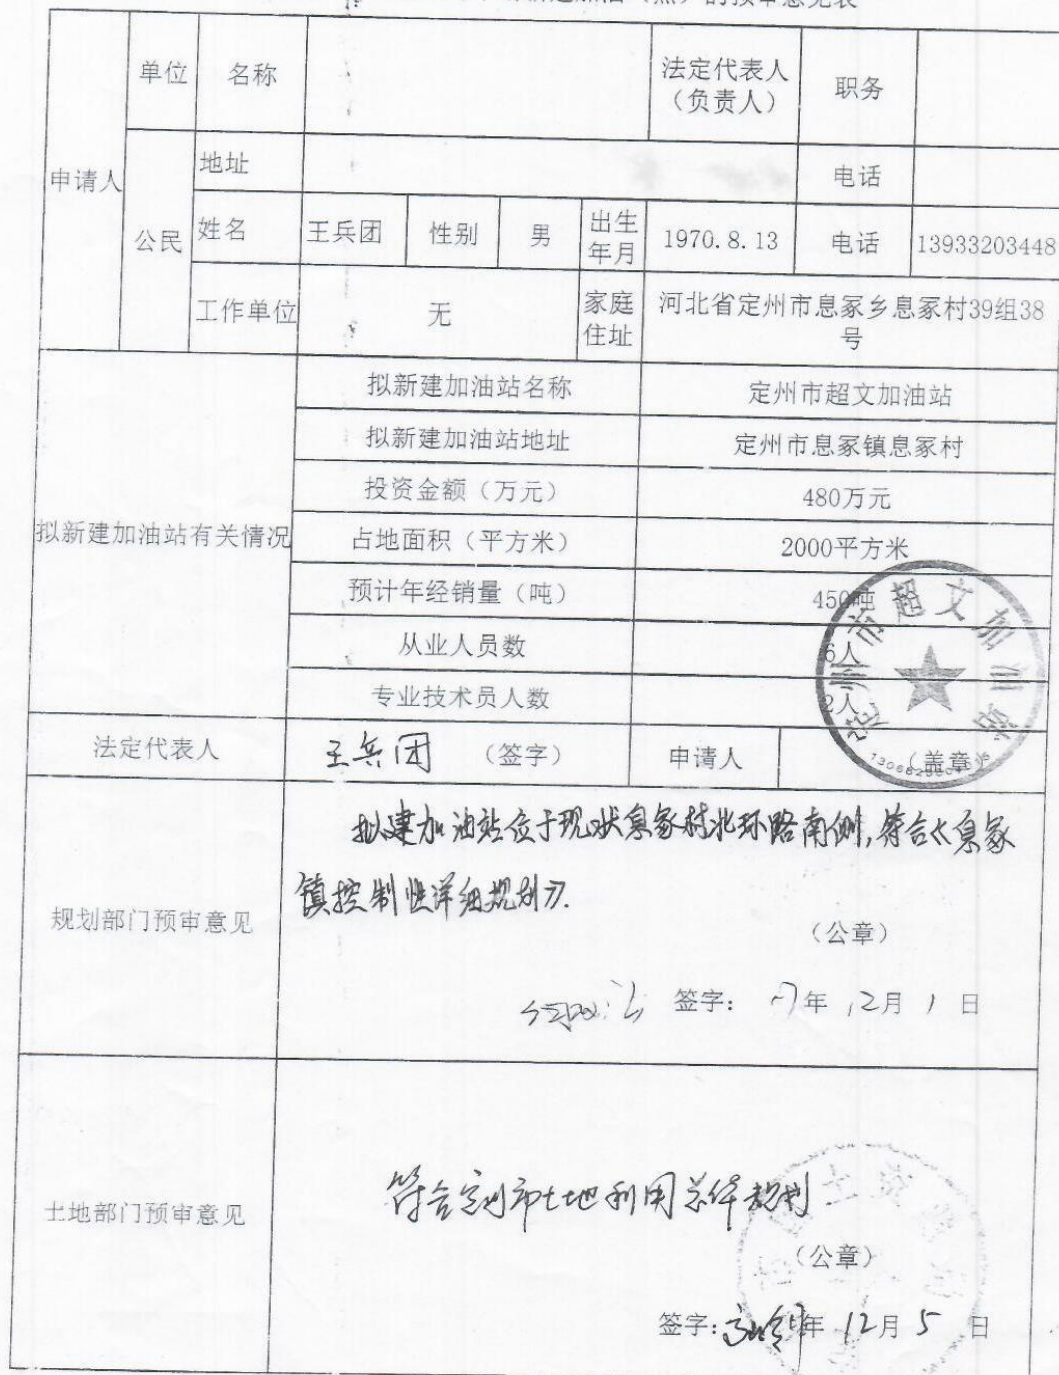 的预审意见表
单位 名称 法定代表人（负责人） 职务
申请人
地址 电话
公民 姓名 王兵团 性别 男 出生年月 1970.8.13 电话 13933203448
工作单位 无 家庭住址 河北省定州市息冢乡息冢村39组38号
拟新建加油站有关情况
拟新建加油站名称 定州市超文加油站
拟新建加油站地址 定州市息冢镇息冢村
投资金额（万元） 480万元
占地面积（平方米） 2000平方米
预计年经销量（吨） 450吨
从业人员数 6人
专业技术员人数 2人
定州市超文加油站
法定代表人 王兵团 （签字） 申请人 （盖章）
拟建加油站位于现状息冢村北环路南侧,符合《息冢
镇控制性详细规划》.
规划部门预审意见
（公章）
签字： 年 12月 1 日
符合定州市土地利用总体规划
土地部门预审意见
（公章）
签字： 年 12月 5 日